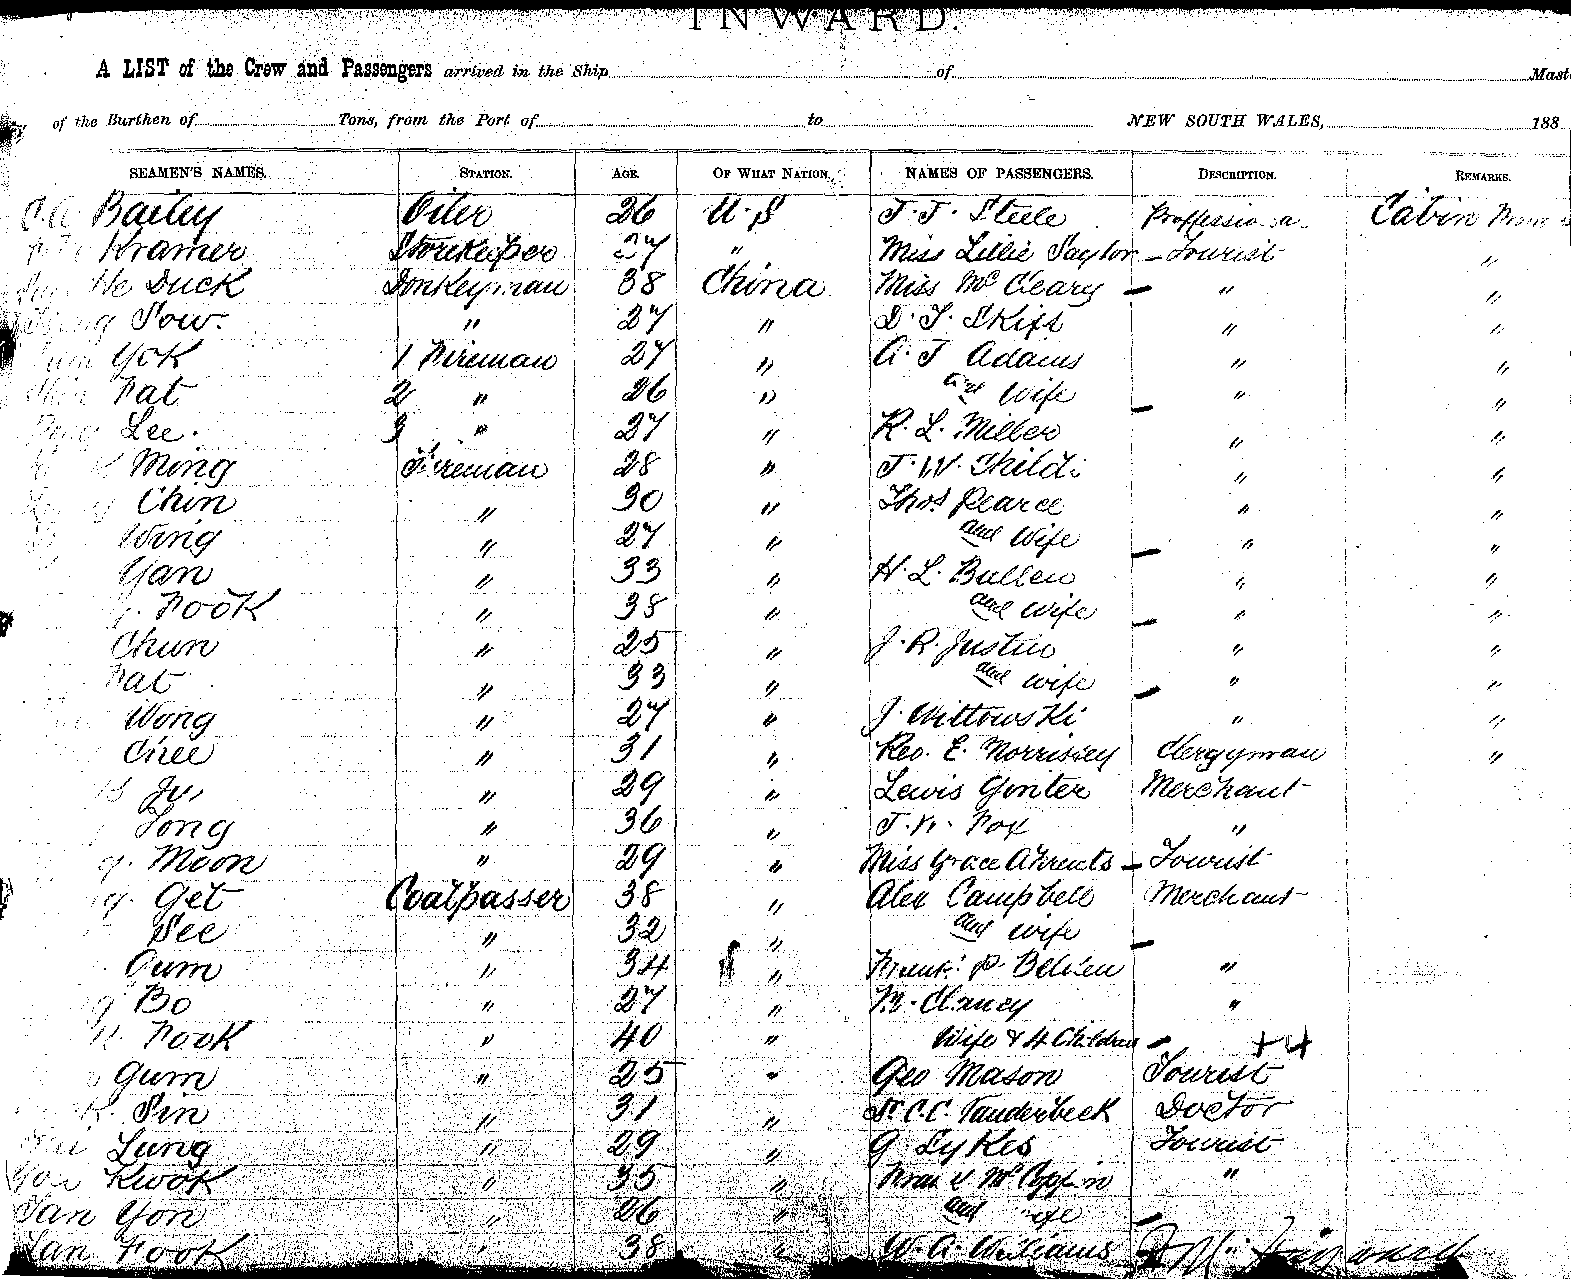 INWARD.
A LIST of the Crew and Passengers arrived in the Ship of
of the Burthen of Tons, from the Port of to NEW SOUTH WALES, 188
SEAMEN'S NAMES. STATION. AGE. OF WHAT NATION. NAMES OF PASSENGERS. DESCRIPTION. REMARKS.
Bailey Oiler 26 U.S J. J. Steele Cabin
Kramer Storekeeper 27 " Miss Lillie Saylor - Tourist "
Duck Donkeyman 38 China Miss McCleary - " "
Sow. " 27 " D. T. Skiff " "
Yok 1 Fireman 27 " A. J Adams " "
Fat 2 " 26 " and Wife - " "
Lee. 3 " 27 " R. L. Miller " "
Ming Fireman 28 " J. W. Childs " "
Chin " 30 " Thos. Pearce " "
Wing " 27 " and Wife - " "
Yan " 33 " H. L. Bullen " "
Fook " 38 " and wife - " "
Chun " 25 " J. R. Justin " "
Fat " 33 " and wife - " "
Wong " 27 " J. Wittowski " "
Chee " 31 " Rev. E. Morrissey Clergyman "
" 29 " Lewis Ginter Merchant
Tong " 36 " Fox "
Moon " 29 " Miss Grace Ahrents - Tourist
Get Coalpasser 38 " Alex Campbell Merchant
See " 32 " and wife -
" 34 " P. "
Bo " 27 " M. Clancy "
Fook " 40 " Wife & 4 Children - +4
Gum " 25 " Geo Mason Tourist
Sin " 31 " Dr. C.C. Vanderbeck Doctor
Lung " 29 " G Sykes Tourist
Kwok " 35 " "
Yan Yon " 26 " and wife -
Fook " 38 " W. A. Williams